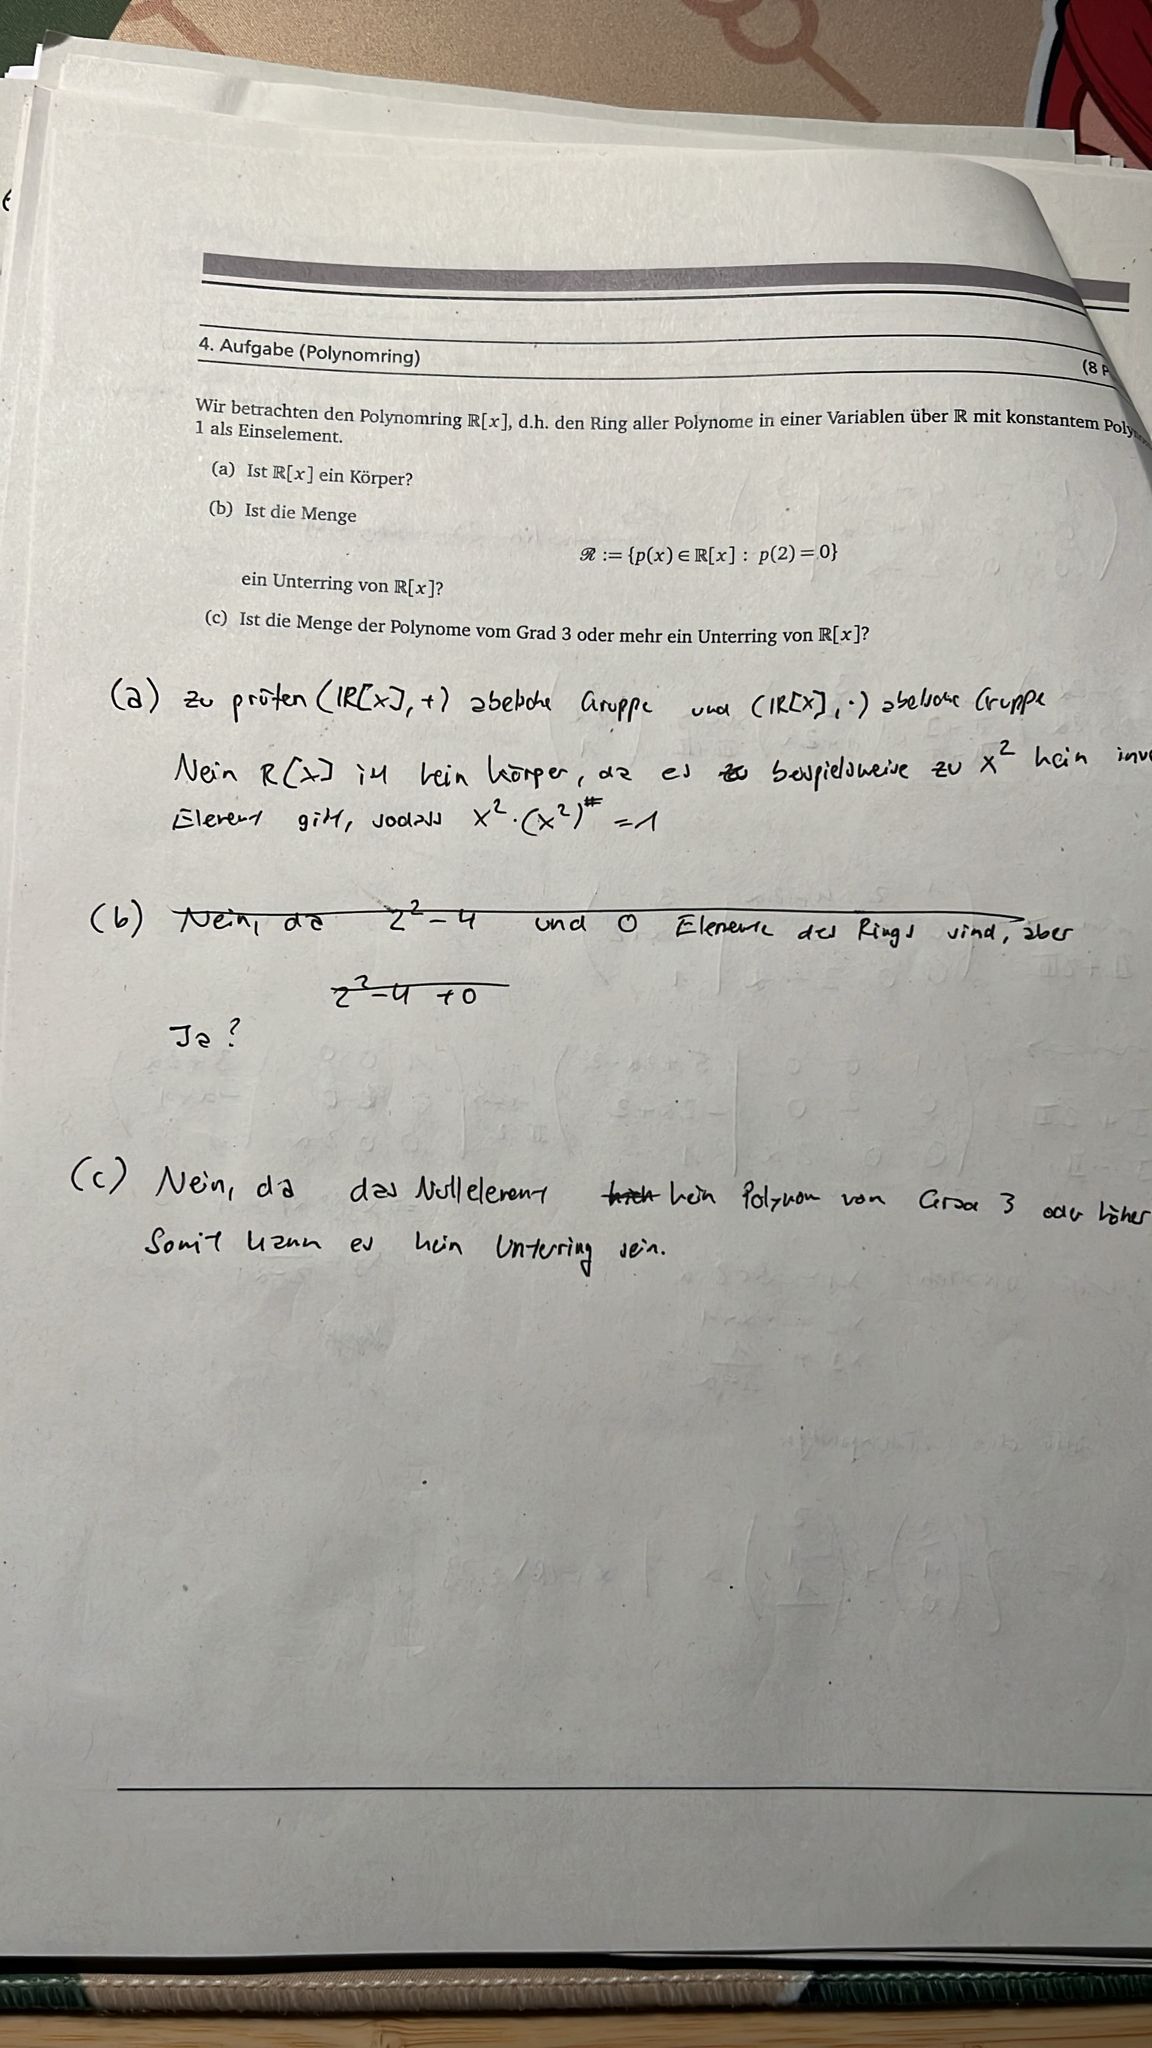 4. Aufgabe (Polynomring)
(8 P
Wir betrachten den Polynomring ℝ[x], d.h. den Ring aller Polynome in einer Variablen über ℝ mit konstantem Polyno
1 als Einselement.
(a) Ist ℝ[x] ein Körper?
(b) Ist die Menge
ℛ := {p(x) ∈ ℝ[x] : p(2) = 0}
ein Unterring von ℝ[x]?
(c) Ist die Menge der Polynome vom Grad 3 oder mehr ein Unterring von ℝ[x]?
(a) zu prüfen (ℝ[x], +) abelsche Gruppe und (ℝ[x], ·) abelsche Gruppe
Nein ℝ[x] ist kein Körper, da es zu beispielsweise zu x² kein inve
Element gibt, sodass x² · (x²)^# = 1
(b) Nein, da 2² - 4 und 0 Elemente des Rings sind, aber
2² - 4 + 0
Ja?
(c) Nein, da das Nullelement kein Polynom von Grad 3 oder höher
Somit kann es kein Unterring sein.